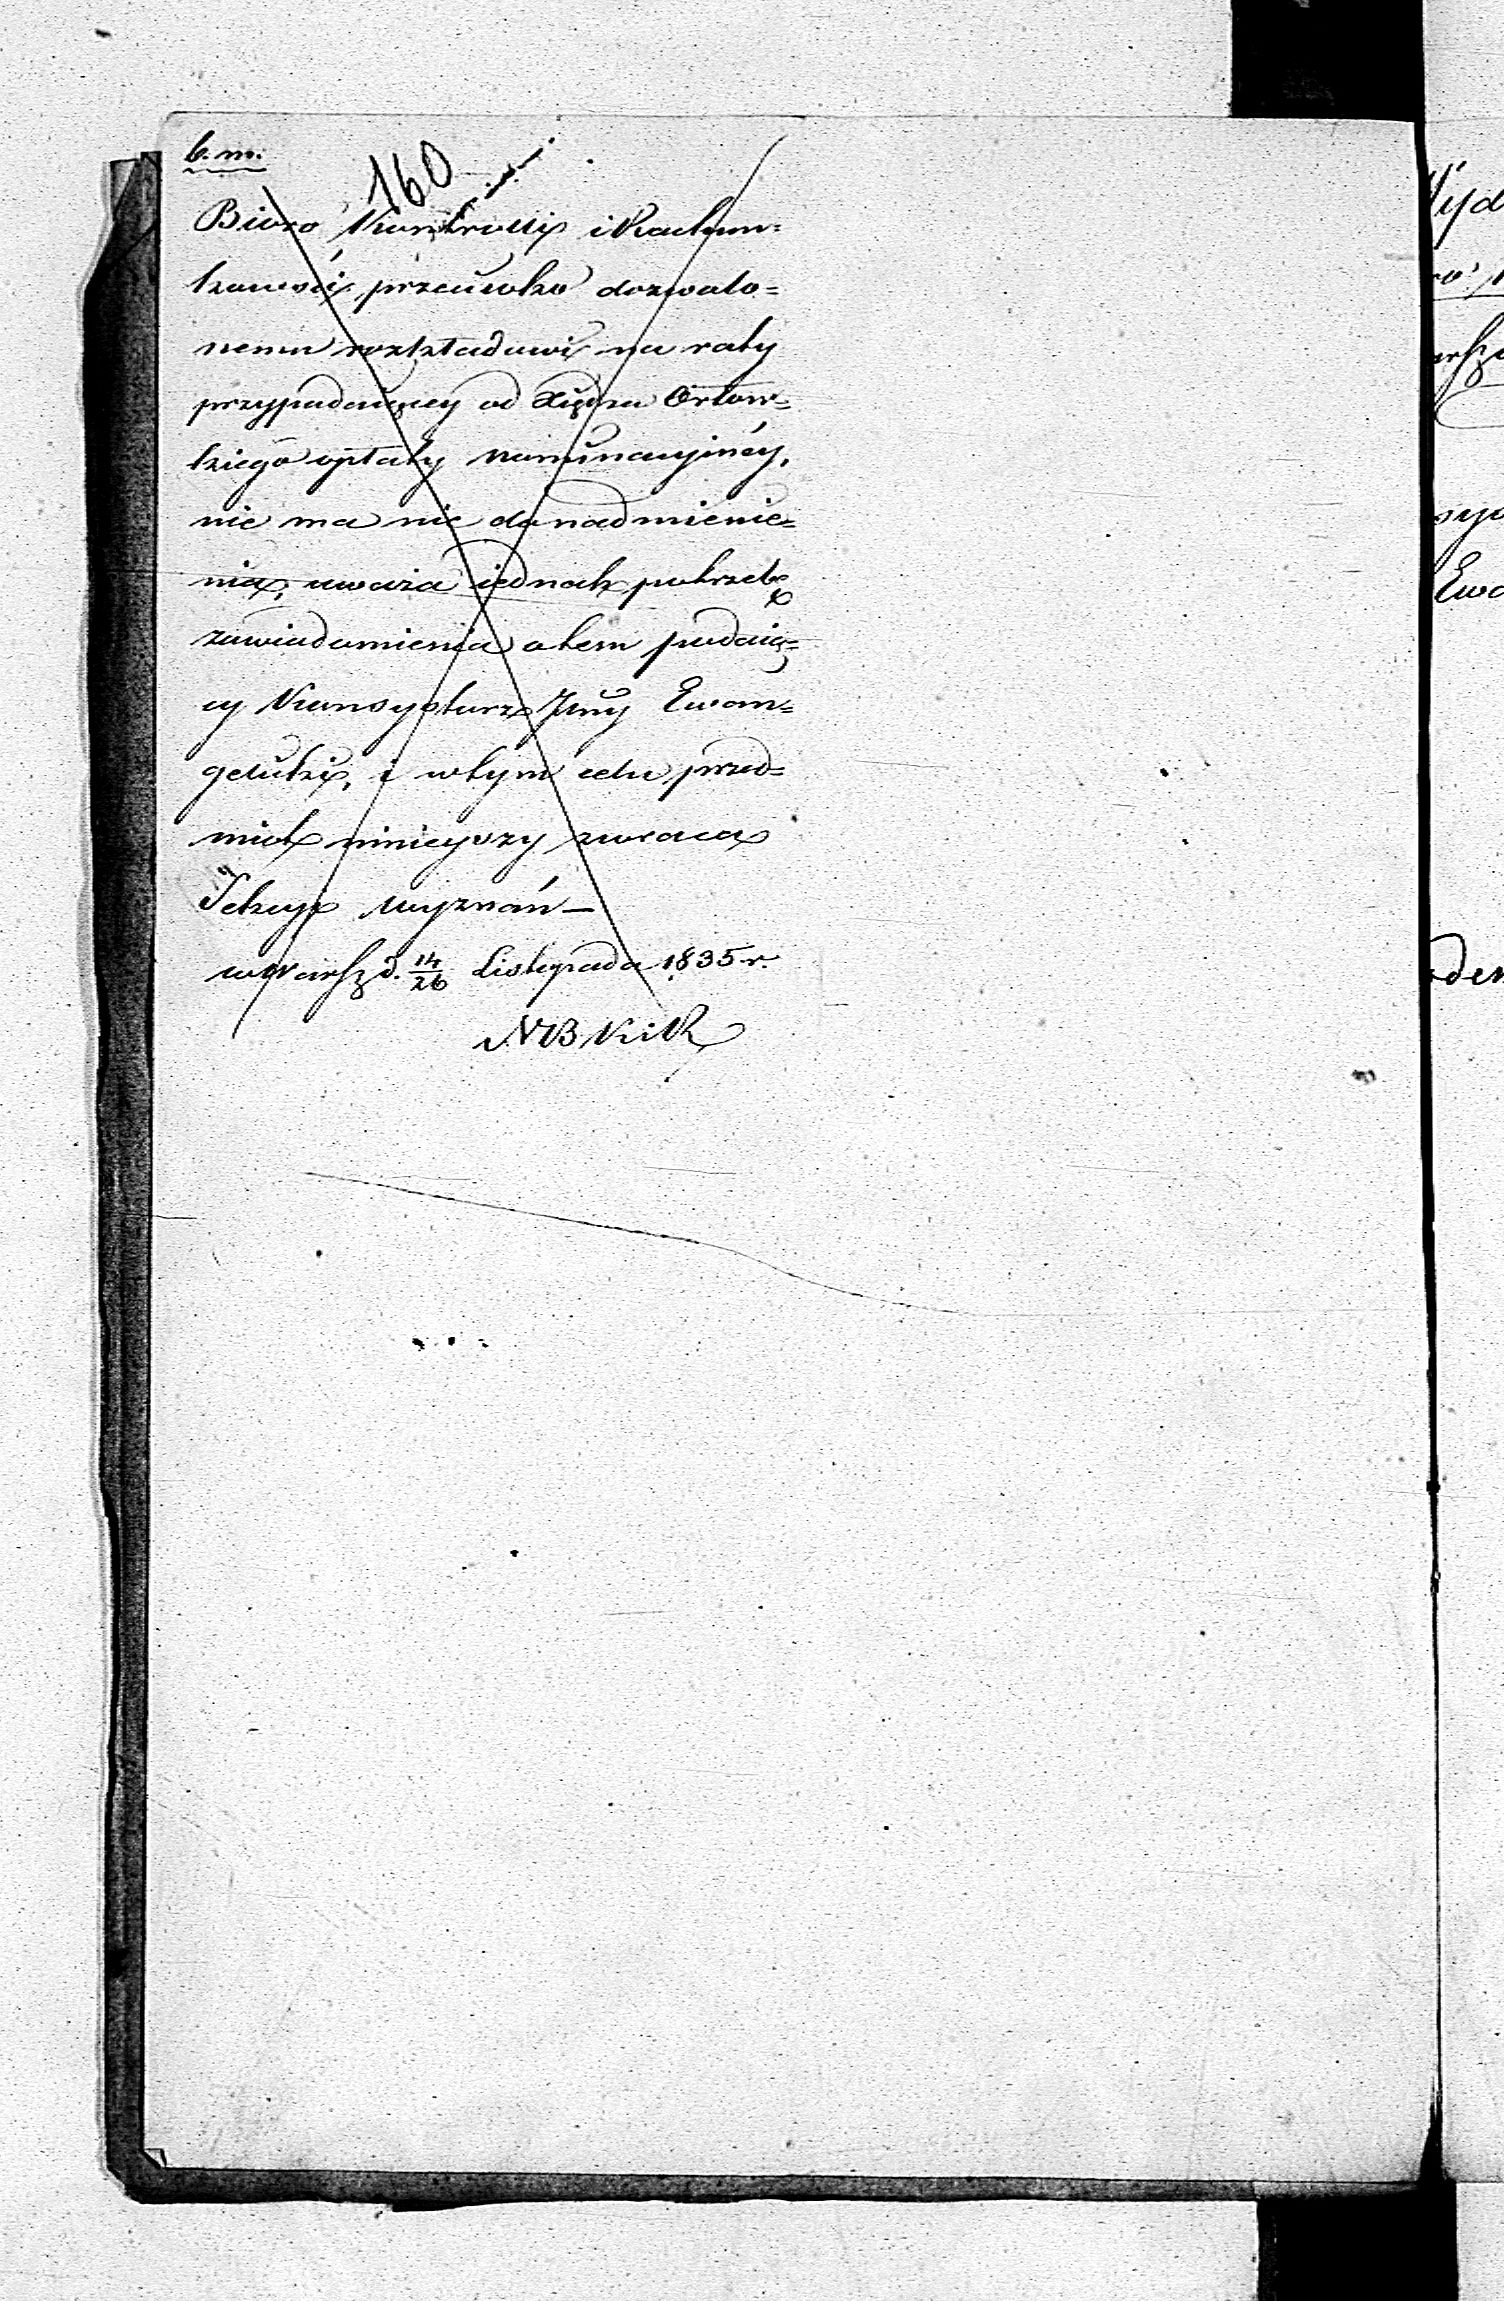 b. m.
160
Biuro Kontrolli i Rachun=
kowości przeciwko dozwalo=
nemu rozkładowi na raty
przypadaiącey od Xiędza Orłow=
kiego opłaty nominacyinéy,
nie ma nic do nadmienie=
nia, uważa iednak potrzebę
zawiadomienia o tem podaią=
cy Konsystorz Jlny Ewan=
gelicki, i w tym celu przed=
miot ninieyszy zwraca
Sekcyi Wyznań —
w Warsz d. 14/26 Listopada 1835 r.
NB KiR